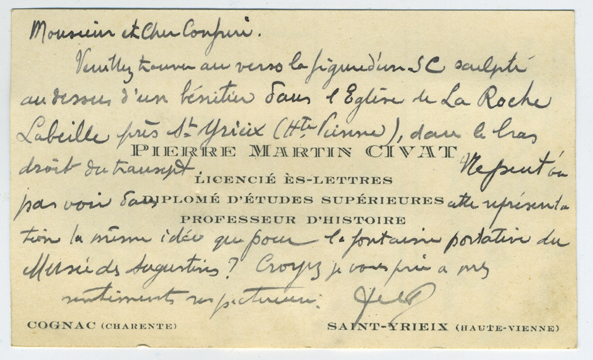 Monsieur et Cher Confrère.
Veuillez trouver au verso la figure d'un SC sculpté
au dessus d'un bénitier dans l'Eglise de La Roche
Labeille près St Yrieix (Hte Vienne), dans le bras
PIERRE MARTIN CIVAT
droit du transept. Ne peut-on
LICENCIÉ ÈS-LETTRES
pas voir dans cette représenta
DIPLOMÉ D'ÉTUDES SUPÉRIEURES
PROFESSEUR D'HISTOIRE
tion la même idée que pour la fontaine portative du
Musée des Augustins ? Croyez je vous prie a mes
sentiments respectueux.
COGNAC (CHARENTE) SAINT-YRIEIX (HAUTE-VIENNE)